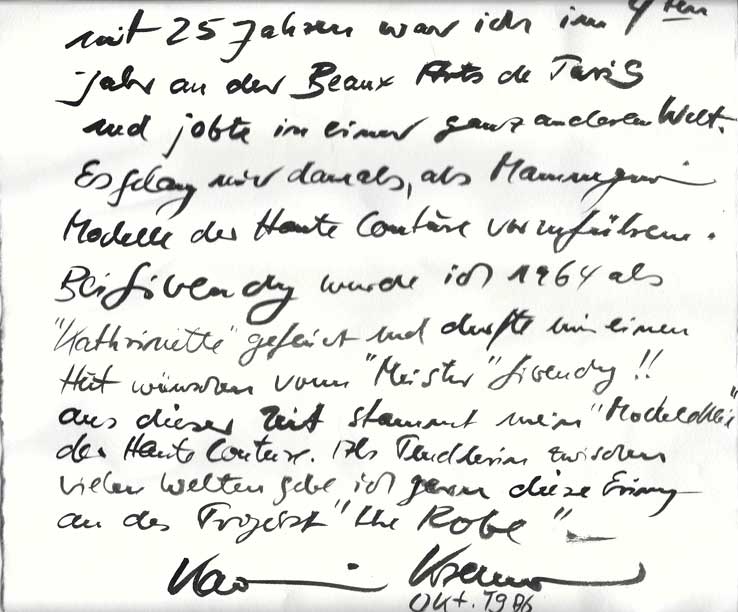 mit 25 Jahren war ich im 4ten
Jahr an der Beaux Arts de Paris
und jobte in einer ganz anderen Welt.
Es gelang mir damals, als Mannequin
Modelle der Haute Couture vorzuführen.
Bei Givenchy wurde ich 1964 als
"Kathrinette" gefeiert und durfte mir einen
Hut wünschen vom "Meister" Givenchy!!
aus dieser Zeit stammt mein
der Haute Couture. Als Pendlerin zwischen
vielen Welten gebe ich gern diese
an das Projekt "the Robe"
Okt. 1986